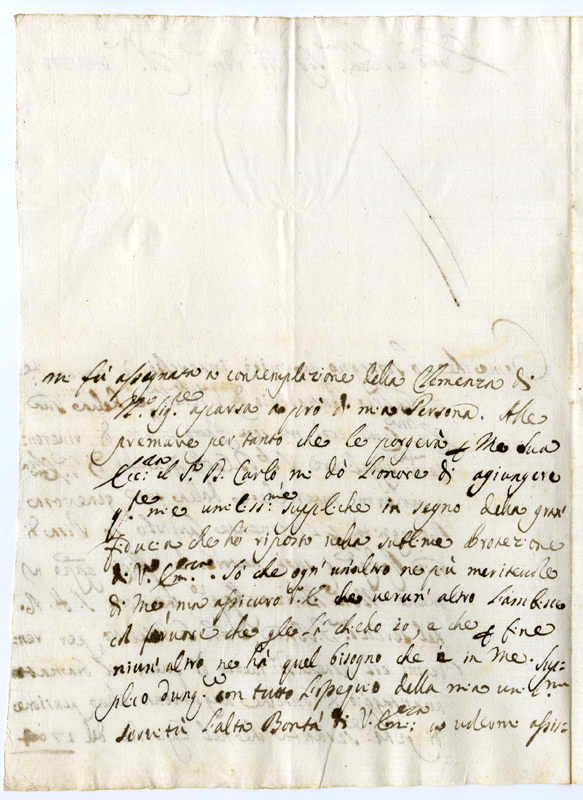 me fú assegnata a contemplazione della Clemenza di
N. Sig.re aparsa a pró di mia Persona. Alle
premure per tanto che le porgerà p Me Sua
Ecc:za il S.r D. Carlo, mi dò l'onore di agiungere
q.te mie umiliss:me supliche in segno della gran
fiducia che hò riposto nella sublime Protezione
di V. Em.za. Só che ogn' un'altro ne piú meritevole
di Me, ma assicuro V. E. che verun' altro l'ambisce
col fervore che gle la chiedo io, e che p fine
niun' altro ne hà quel bisogno che è in Me. Sup=
plico dunq.e con tutto l'ossequio della mia um:ma
servitú l'alta Bontá di V. Em:za a volerme assis=